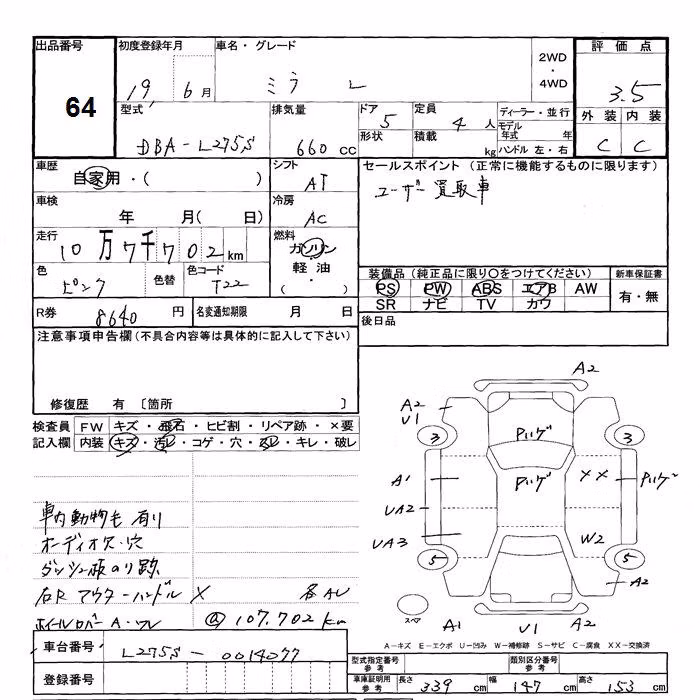 出品番号
64
初度登録年月
19 6月
車名・グレード
ミラ L
2WD
・
4WD
評価点
3.5
外装 内装
C C
型式
DBA-L275S
排気量
660 cc
ドア 5
形状
定員 4 人
積載 kg
ディーラー・並行
モデル年式 年
ハンドル 左・右
車歴
自家用・( )
シフト
AT
セールスポイント (正常に機能するものに限ります)
ユーザー買取車
車検
年 月( 日)
冷房
AC
走行
10万7千702km
燃料
ガソリン
軽油
( ・ )
色
ピンク
色替
色コード
T22
装備品(純正品に限り○をつけてください)
PS PW ABS エアB AW
SR ナビ TV カワ
新車保証書
有・無
R券 8640 円
名変通知期限 月 日
後日品
注意事項申告欄(不具合内容等は具体的に記入して下さい)
修復歴 有 〔箇所 〕
検査員記入欄
FW キズ・飛石・ヒビ割・リペア跡・×要
内装 キズ・汚レ・コゲ・穴・スレ・キレ・破レ
車内動物毛有り
オーディオ穴・穴
ダッシュ板のり跡
右R アウターハンドル X 各AU
ホイールカバー A・ワレ @107,702km
A2
A2
U1
3 3
ハゲ
ハゲ
XX ハゲ
A1
UA2
UA3
W2
5 5
A2
スペア
A1 U1 A2
A-キズ E-エクボ U-凹み W-補修跡 S-サビ C-腐食 XX-交換済
車台番号
L275S-0014077
登録番号
型式指定番号
参考
類別区分番号
参考
車庫証明用
参考
長さ 339 cm 幅 147 cm 高さ 153 cm